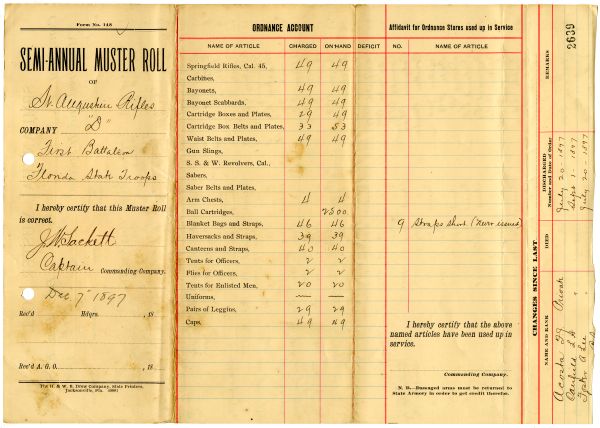 Form No. 148
SEMI-ANNUAL MUSTER ROLL
OF
St. Augustine Rifles
COMPANY "D"
First Battalion
Florida State Troops
I hereby certify that this Muster Roll
is correct.
J W Sackett
Captain Commanding Company.
Dec 7" 1897
Rec'd Hdqrs. , 18
Rec'd A. G. O. , 18
The H. & W. B. Drew Company, State Printers,
Jacksonville, Fla.
ORDNANCE ACCOUNT
NAME OF ARTICLE CHARGED ON HAND DEFICIT
Springfield Rifles, Cal. 45, 49 49
Carbines,
Bayonets, 49 49
Bayonet Scabbards, 49 49
Cartridge Boxes and Plates, 29 49
Cartridge Box Belts and Plates, 33 53
Waist Belts and Plates, 49 49
Gun Slings,
S. S. & W. Revolvers, Cal.,
Sabers,
Saber Belts and Plates,
Arm Chests, 4 4
Ball Cartridges, 2500
Blanket Bags and Straps, 46 46
Haversacks and Straps, 39 39
Canteens and Straps, 40 40
Tents for Officers, 2 2
Flies for Officers, 2 2
Tents for Enlisted Men, 20 20
Uniforms, — —
Pairs of Leggins, 29 29
Caps, 49 49
Affidavit for Ordnance Stores used up in Service
NO. NAME OF ARTICLE
9 Straps short (never issued)
I hereby certify that the above
named articles have been used up in
service.
Commanding Company.
N. B.—Damaged arms must be returned to
State Armory in order to get credit therefor.
2639
CHANGES SINCE LAST
NAME AND RANK DIED DISCHARGED Number and Date of Order REMARKS
Acosta Private July 20 - 1897
Sept 1 - 1897
Lee July 20 - 1897